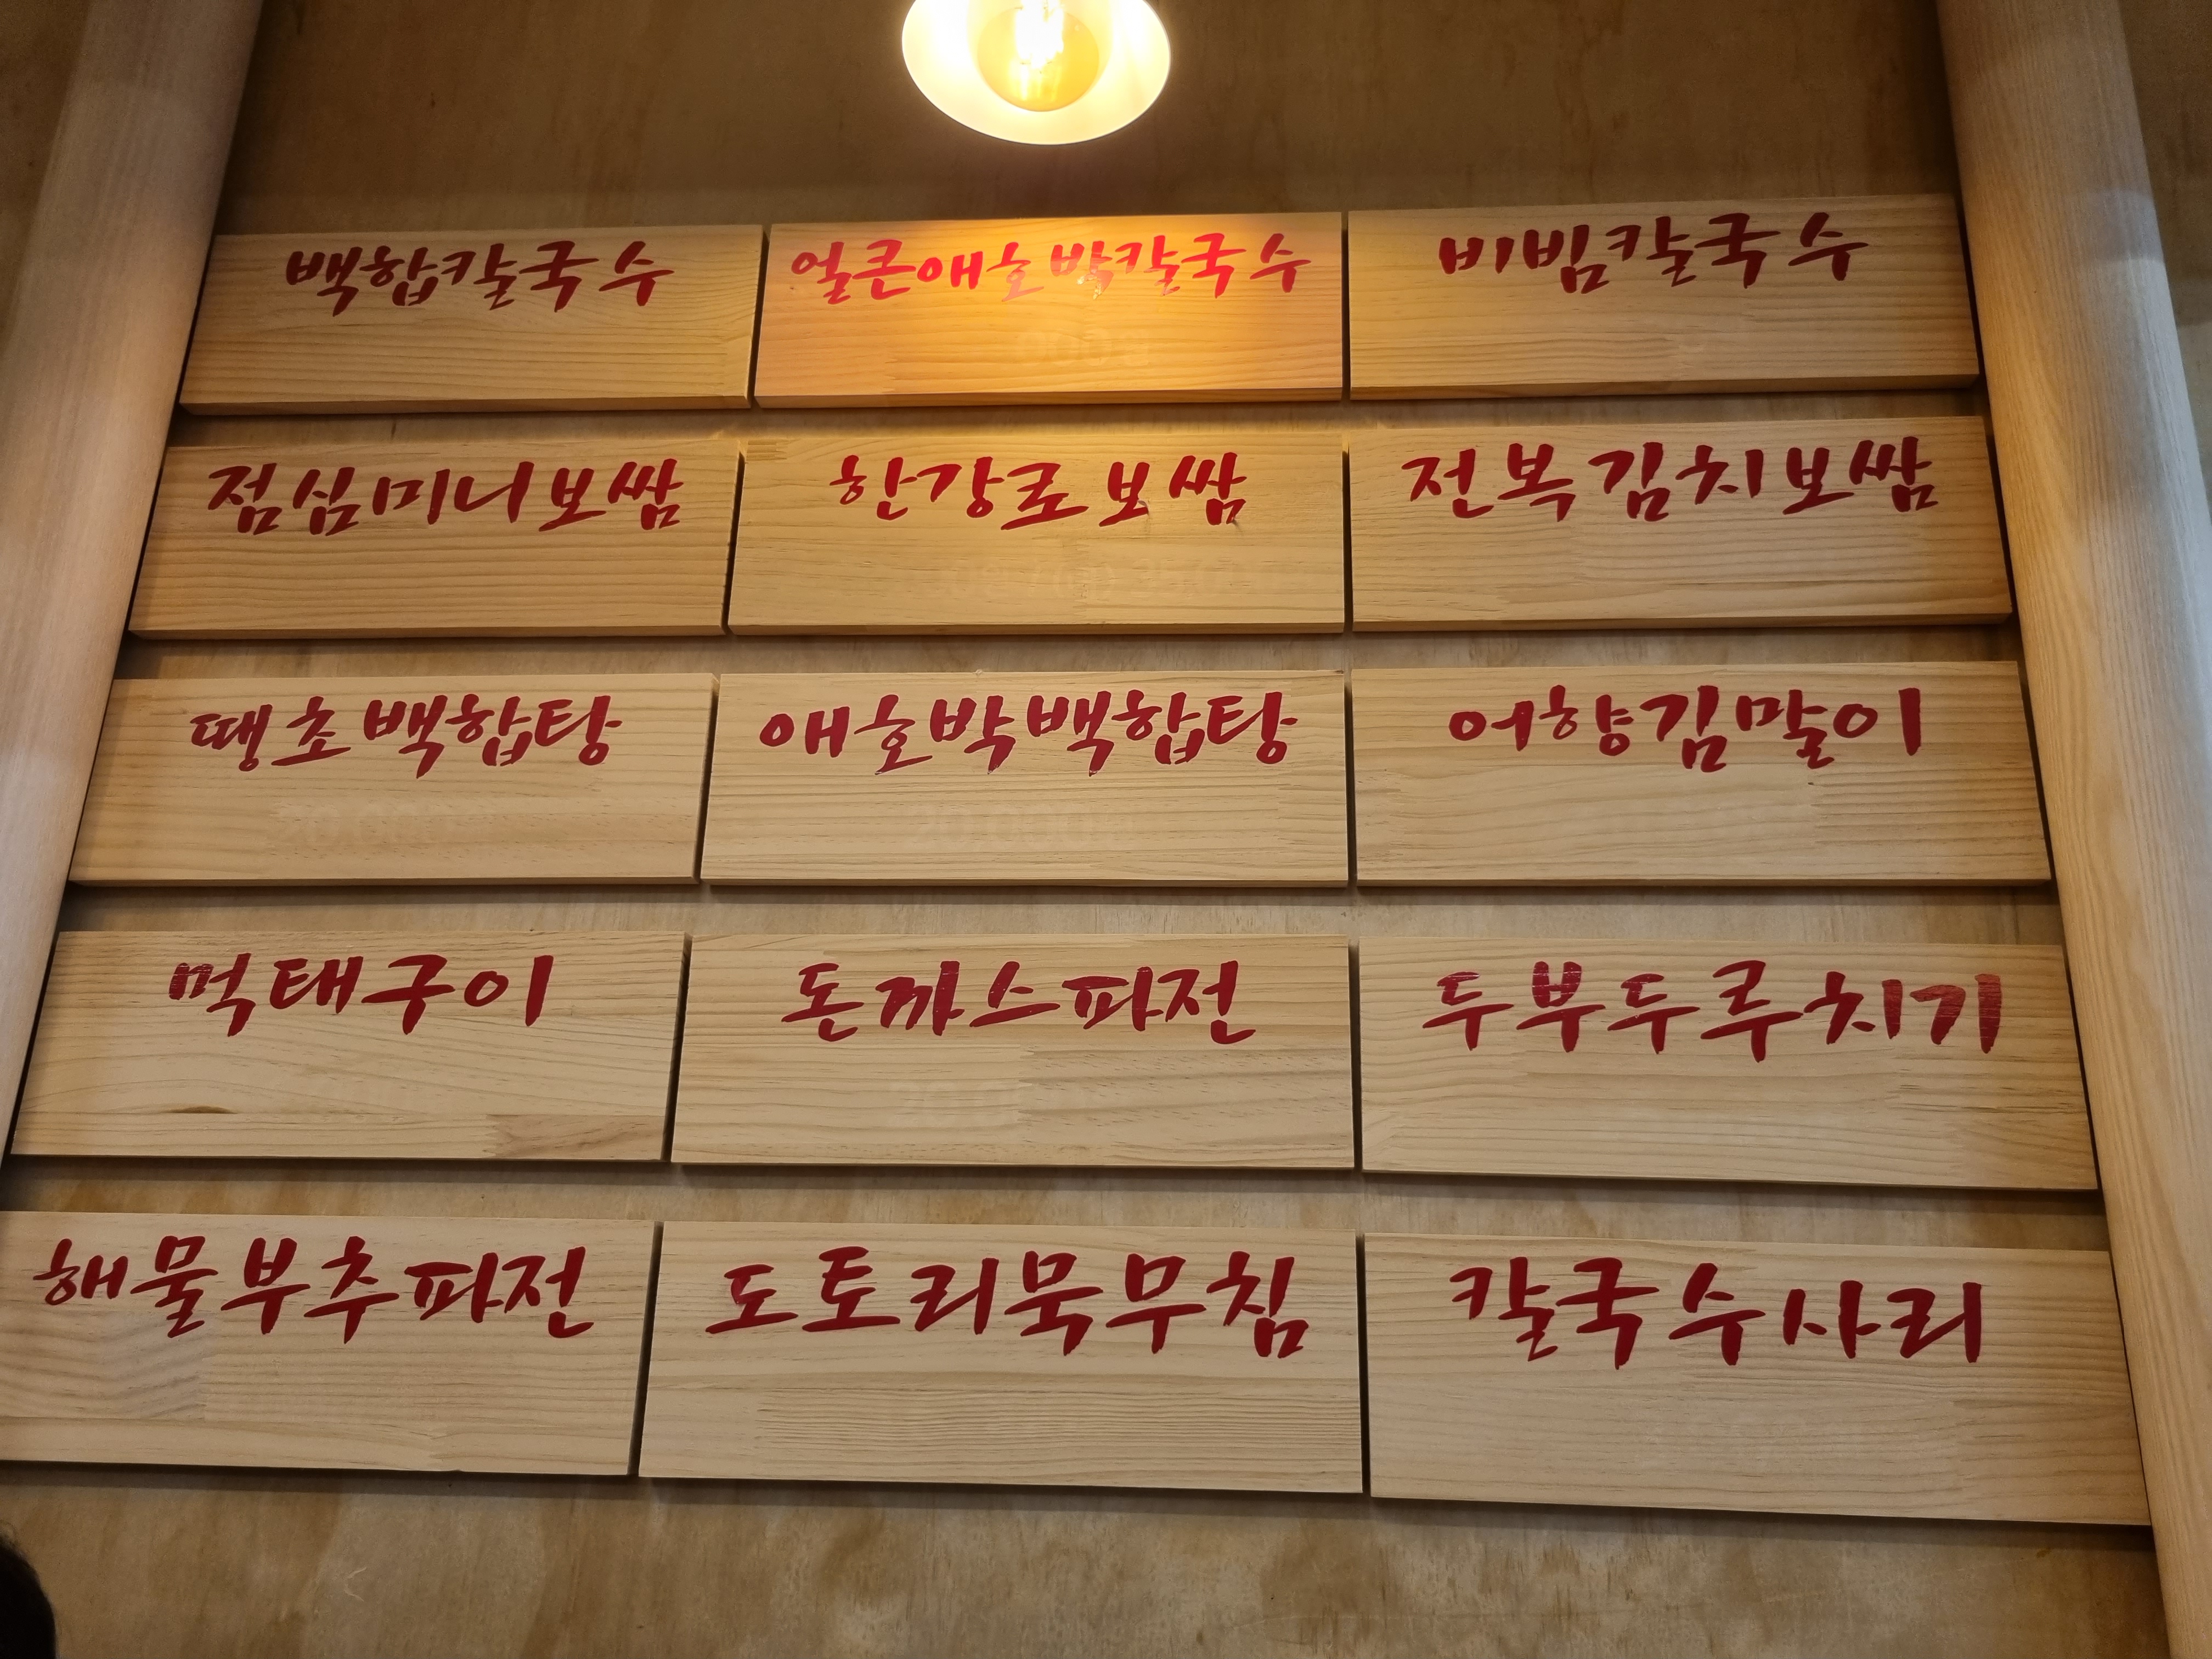 백합칼국수
얼큰애호박칼국수
비빔칼국수
점심미니보쌈
한강로보쌈
전복김치보쌈
땡초백합탕
애호박백합탕
어향김말이
먹태구이
돈까스파전
두부두루치기
해물부추파전
도토리묵무침
칼국수사리